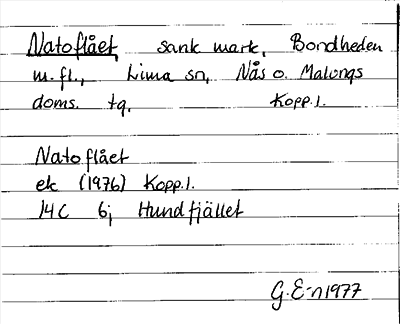 Natoflået, sank mark, Bondheden
m.fl., Lima sn, Nås o. Malungs
doms. tg, Kopp.l.
Natoflået
ek (1976) Kopp.l.
14C 6j Hundfjället
G.E-n 1977